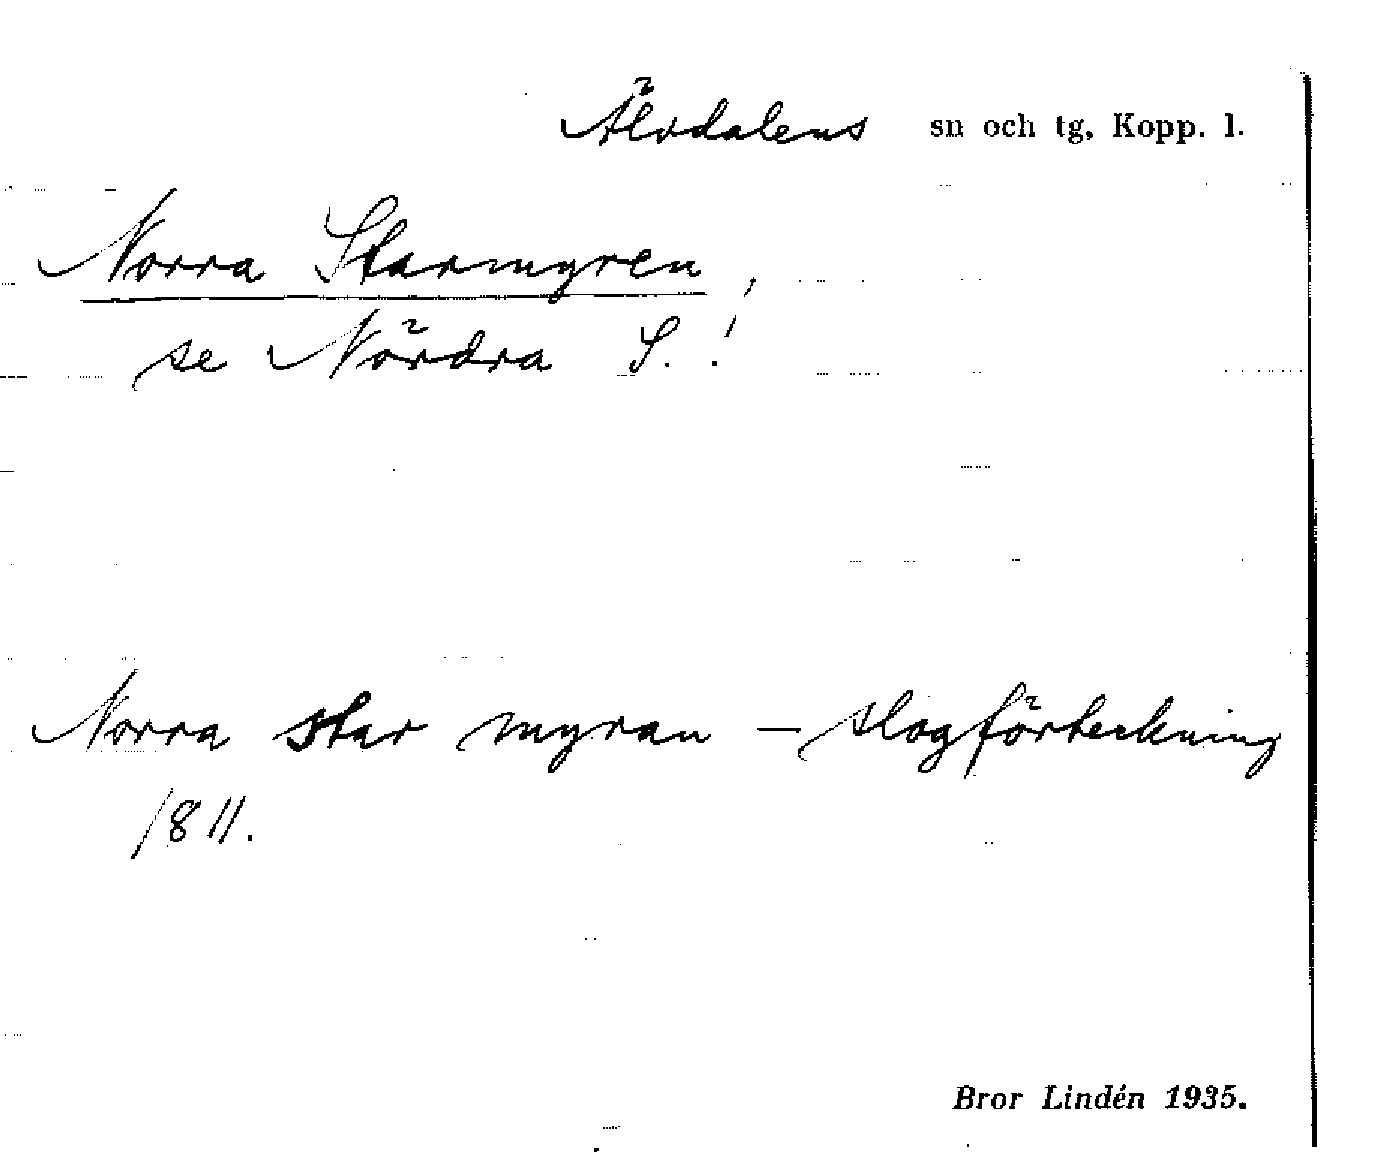 Älvdalens sn och tg, Kopp. l.
Norra Starmyren,
se Nördra S.!
Norra star myran – slagförteckning
1811.
Bror Lindén 1935.